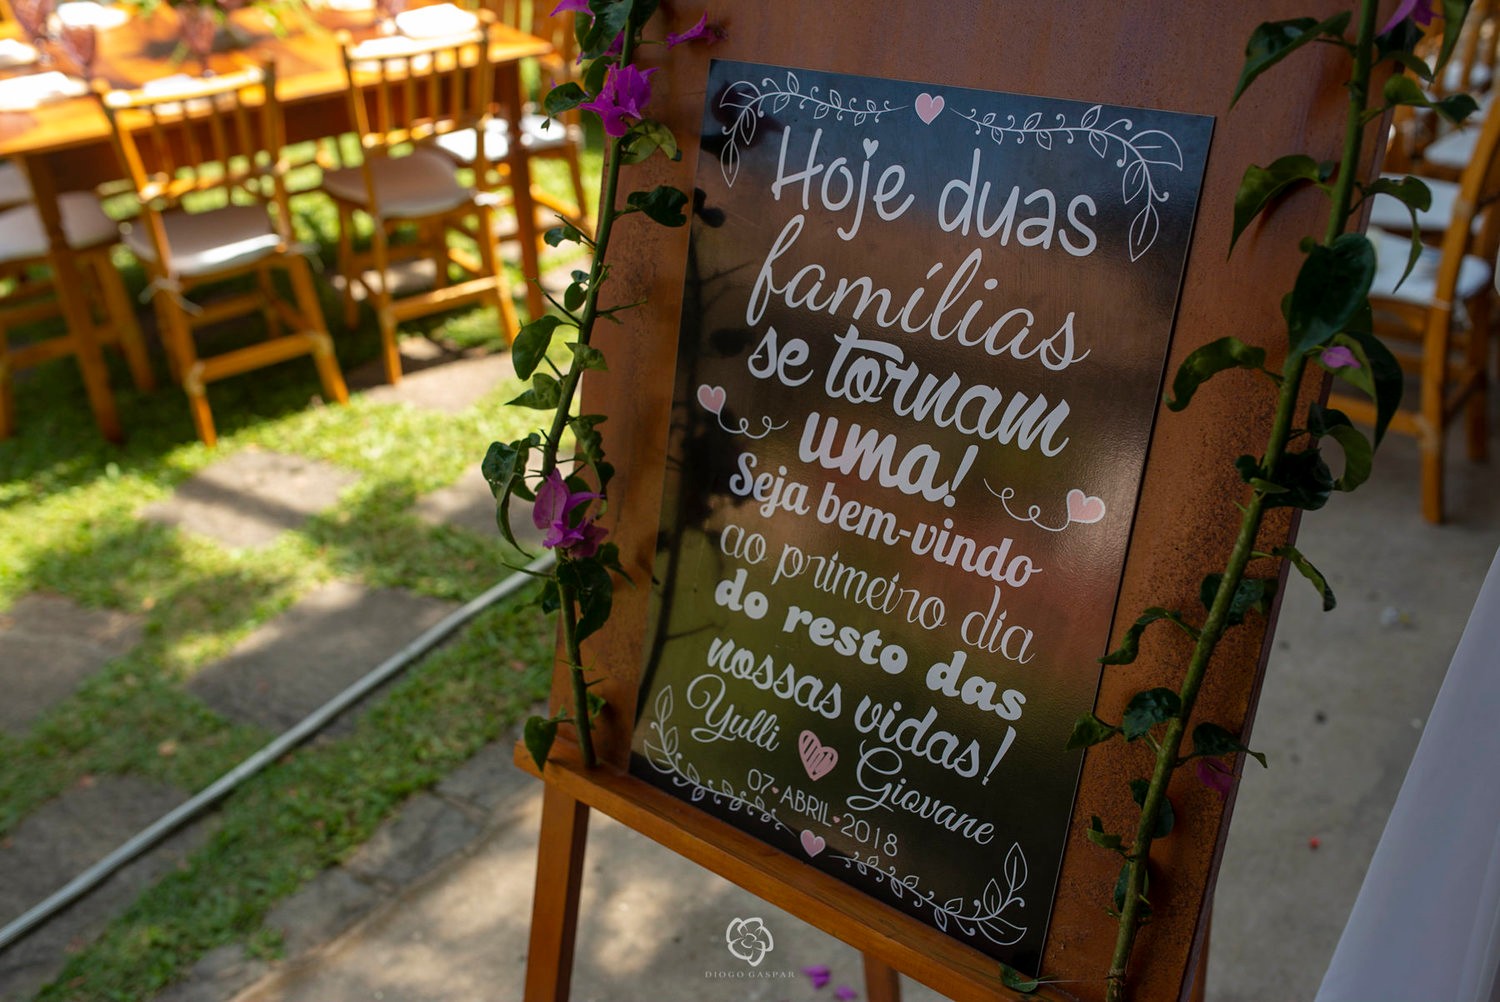 Hoje duas
famílias
se tornam
uma!
Seja bem-vindo
ao primeiro dia
do resto das
nossas vidas!
Yulli Giovane
07 ABRIL 2018
DIOGO GASPAR